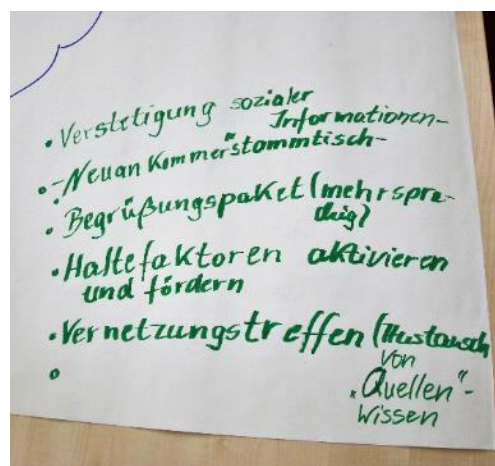 • Verstetigung sozialer
Informationen-
• -Neuankommer"stammtisch-
• Begrüßungspaket (mehrspra-
chig)
• Haltefaktoren aktivieren
und fördern
• Vernetzungstreffen (Austausch
von
"Quellen"-
wissen
•